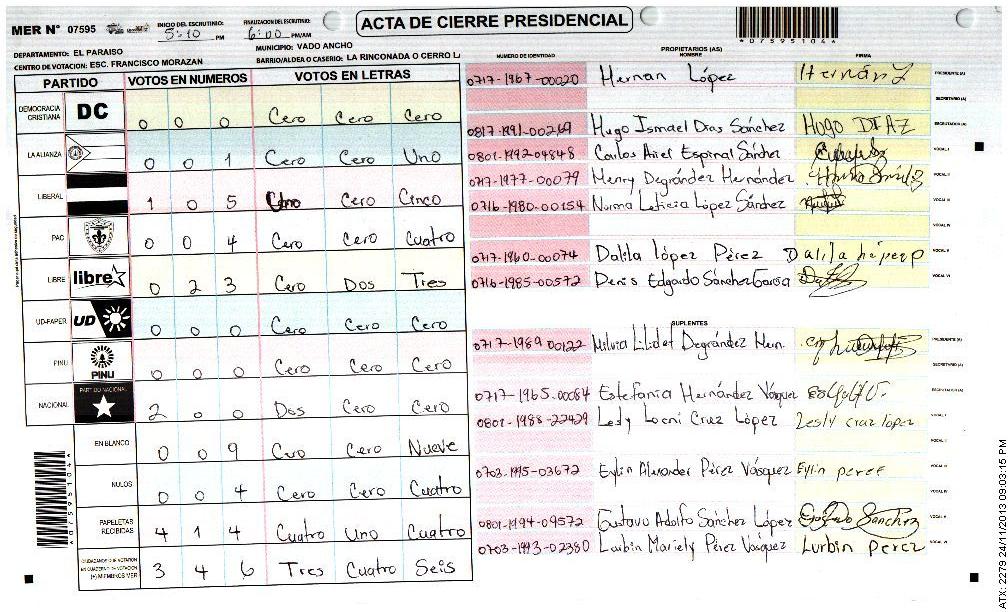 ACTA DE CIERRE PRESIDENCIAL
MER N° 07595
INICIO DEL ESCRUTINIO: 5:10 PM
FINALIZACION DEL ESCRUTINIO: 6:00 PM/AM
*07595104*
DEPARTAMENTO: EL PARAISO
MUNICIPIO: VADO ANCHO
CENTRO DE VOTACION: ESC. FRANCISCO MORAZAN
BARRIO/ALDEA O CASERIO: LA RINCONADA O CERRO LA
PARTIDO VOTOS EN NUMEROS VOTOS EN LETRAS
DEMOCRACIA CRISTIANA DC 0 0 0 Cero Cero Cero
LA ALIANZA 0 0 1 Cero Cero Uno
LIBERAL 1 0 5 Uno Cero Cinco
PAC 0 0 4 Cero Cero Cuatro
LIBRE libre 0 2 3 Cero Dos Tres
UD-FAPER UD 0 0 0 Cero Cero Cero
PINU PINU 0 0 0 Cero Cero Cero
NACIONAL PARTIDO NACIONAL 2 0 0 Dos Cero Cero
EN BLANCO 0 0 9 Cero Cero Nueve
NULOS 0 0 4 Cero Cero Cuatro
PAPELETAS RECIBIDAS 4 1 4 Cuatro Uno Cuatro
CIUDADANOS QUE VOTARON EN CUADERNO DE VOTACION (+) MIEMBROS MER 3 4 6 Tres Cuatro Seis
*07595104*
PROPIETARIOS (AS)
NUMERO DE IDENTIDAD NOMBRE FIRMA
0717-1967-00020 Hernan López Hernán L PRESIDENTE (A)
SECRETARIO (A)
0817-1991-00269 Hugo Ismael Dias Sánchez HUGO DIAZ ESCRUTADOR (A)
0801-1992-04848 Carlos Ariel Espinal Sánchez VOCAL I
0717-1977-00079 Menry Degrández Hernández VOCAL II
0716-1980-00154 Norma Leticia López Sánchez VOCAL III
VOCAL IV
0717-1960-00074 Dalila López Pérez Dalila lópez p VOCAL V
0716-1985-00572 Denis Edgardo Sánchez Garcia VOCAL VI
SUPLENTES
0717-1989-00122 Milvia Lilidet Degrández Hern. PRESIDENTE (A)
SECRETARIO (A)
0717-1965-00084 Estefania Hernández Vásquez ESCRUTADOR (A)
0801-1988-22429 Lesly Locni Cruz López Lesly cruz lópez VOCAL I
VOCAL II
0703-1995-03672 Eylin Alexander Pérez Vásquez Eylin perez VOCAL III
VOCAL IV
0801-1994-09572 Gustavo Adolfo Sánchez López Gustavo Sanchez VOCAL V
0703-1993-02380 Lurbin Mariely Pérez Vásquez Lurbin perez VOCAL VI
ATX: 2279 24/11/2013 09:03:15 PM